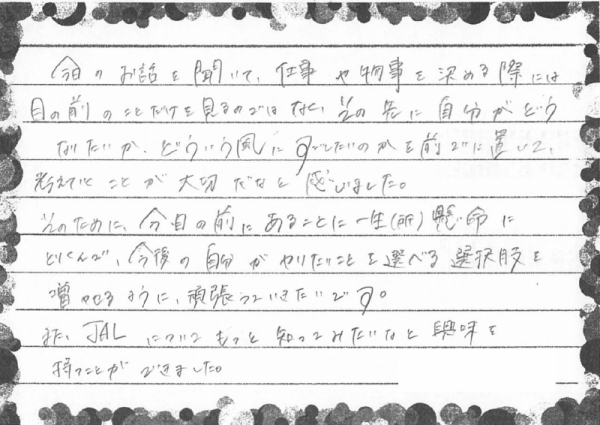 今日のお話を聞いて、仕事や物事を決める際には
目の前のことだけを見るのではなく、その先に自分がどう
なりたいか、どういう風にすごしたいのかを前提に置いて、
考えていくことが大切だなと感じました。
そのために、今目の前にあることに一生(所)懸命に
とりくんで、今後の自分がやりたいことを選べる選択肢を
増やせるように、頑張っていきたいです。
また、JALについてもっと知ってみたいなと興味を
持つことができました。